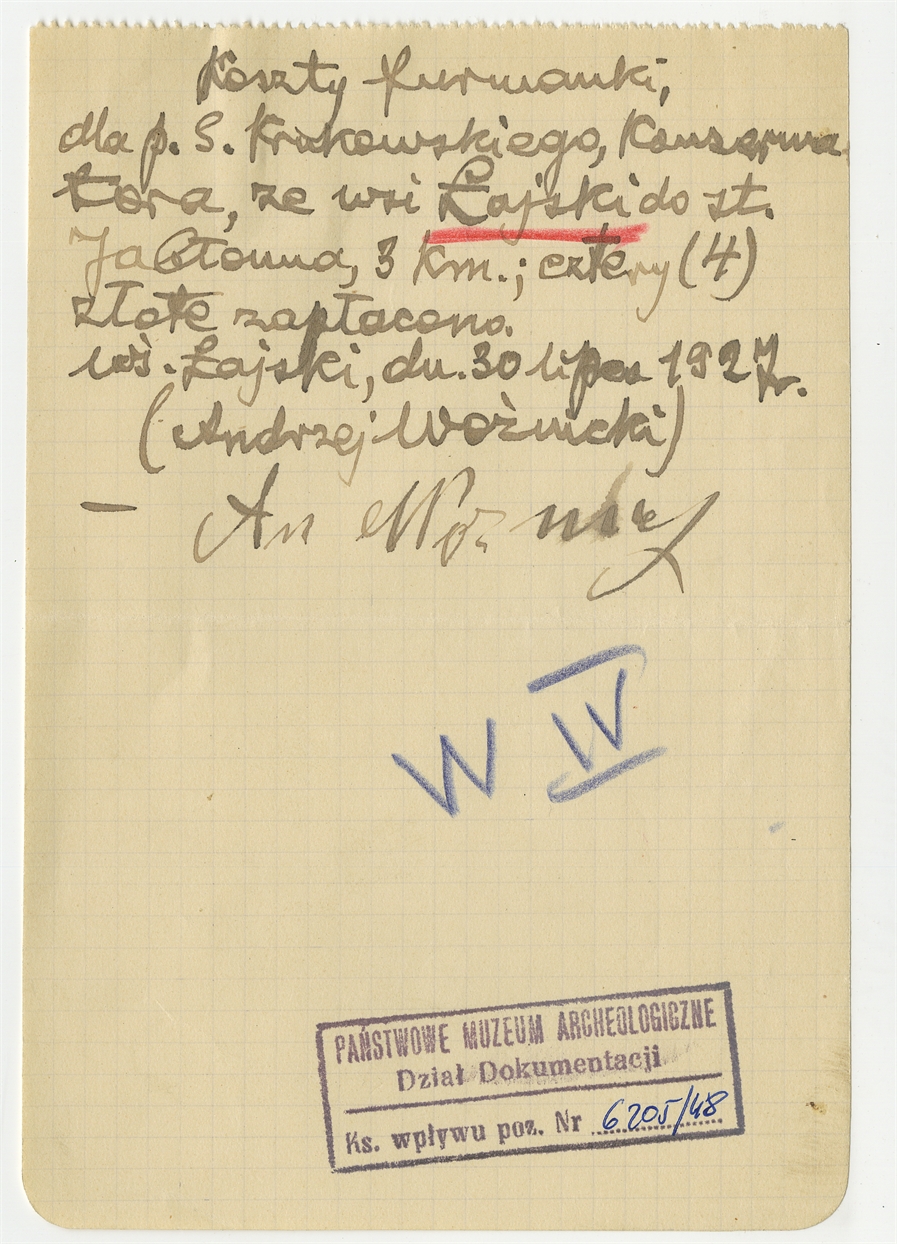 Koszty furmanki,
dla p. S. Krukowskiego, Konserwa-
tora, ze wsi Łajski do st.
Jabłonna, 3 km.; cztery (4)
złote zapłacono.
wś. Łajski, dn. 30 lipca 1927 r.
(Andrzej Woźnicki)
— An Woźnic
W IV
PAŃSTWOWE MUZEUM ARCHEOLOGICZNE
Dział Dokumentacji
Ks. wpływu poz. Nr 6205/48